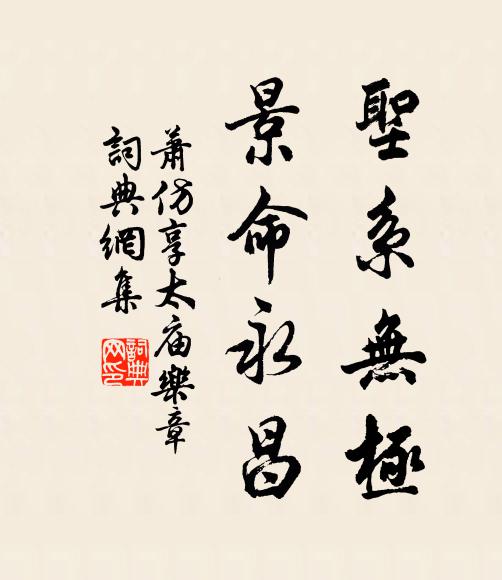 聖系無極
景命永昌
蕭仿享太庙樂章
詞典網集
詞典网印